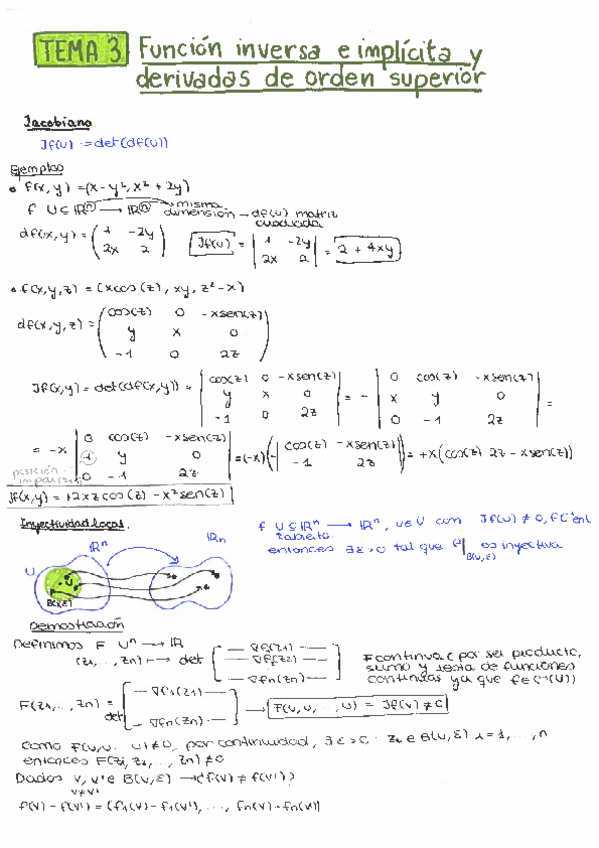 TEMA 3 Función inversa e implícita y
derivadas de orden superior
Jacobiano
Jf(u) := det(df(u))
Ejemplos
• f(x,y) = (x-y², x² + 2y)
f U⊆ℝⁿ → ℝⁿ misma dimensión → df(u) matriz cuadrada
df(x,y) = ( 1 -2y
2x 2 ) Jf(u) = | 1 -2y
2x 2 | = 2 + 4xy
• f(x,y,z) = (xcos(z), xy, z²-x)
df(x,y,z) = ( cos(z) 0 -xsen(z)
y x 0
-1 0 2z )
Jf(x,y) = det(df(x,y)) = | cos(z) 0 -xsen(z)
y x 0
-1 0 2z | = - | 0 cos(z) -xsen(z)
x y 0
0 -1 2z | =
= -x | 0 cos(z) -xsen(z)
1 y 0
0 -1 2z | = (-x) (- | cos(z) -xsen(z)
-1 2z |) = +x(cos(z) 2z - xsen(z))
posición
Jf(x,y) = +2xzcos(z) - x²sen(z)
Inyectividad local.
f U⊆ℝⁿ → ℝⁿ, u∈U con Jf(u) ≠ 0, f C¹ en U
abierto
entonces ∃ε>0 tal que f| es inyectiva
B(u,ε)
U ℝⁿ ℝⁿ
u
B(x,ε)
Demostración
Definimos F Uⁿ → ℝ
(z1,..., zn) ↦ det [ — ∇f(z1) —
— ∇f(z2) —
— ∇fn(zn) — ]
F continua ( por ser producto,
suma y resta de funciones
continuas ya que f∈C¹(U))
F(z1,..., zn) = det [ — ∇f1(z1) —
— ∇fn(zn) — ] → F(u,u,..., u) = Jf(u) ≠ 0
Como F(u,u...u) ≠ 0, por continuidad, ∃ε>0 : zi ∈ B(u,ε) i = 1,..., n
entonces F(z1, z2,..., zn) ≠ 0
Dados v, v' ∈ B(u,ε) → ¿f(v) ≠ f(v')?
v≠v'
f(v) - f(v') = (f1(v) - f1(v'),..., fn(v) - fn(v'))